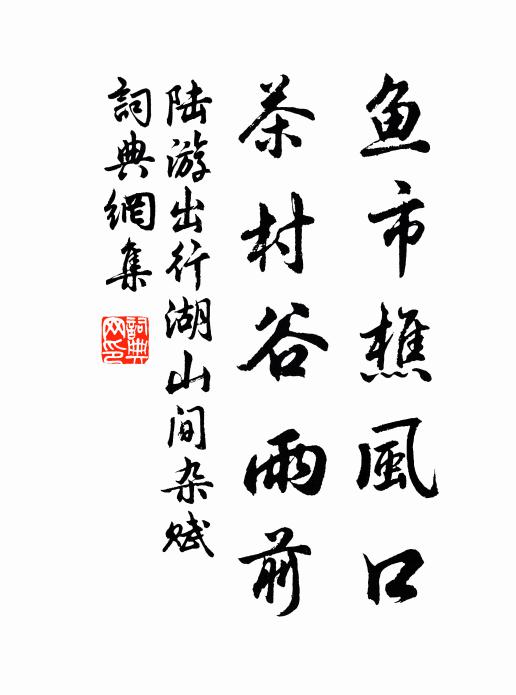 鱼市樵風口
茶村谷雨前
陆游出行湖山间杂赋
詞典網集
詞典網印